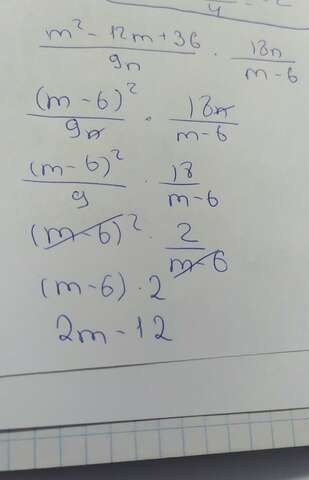 4
(m² - 12m + 36)/9n · 18n/(m - 6)
(m - 6)²/9n · 18n/(m - 6)
(m - 6)²/9 · 18/(m - 6)
(m - 6)² · 2/(m - 6)
(m - 6) · 2
2m - 12